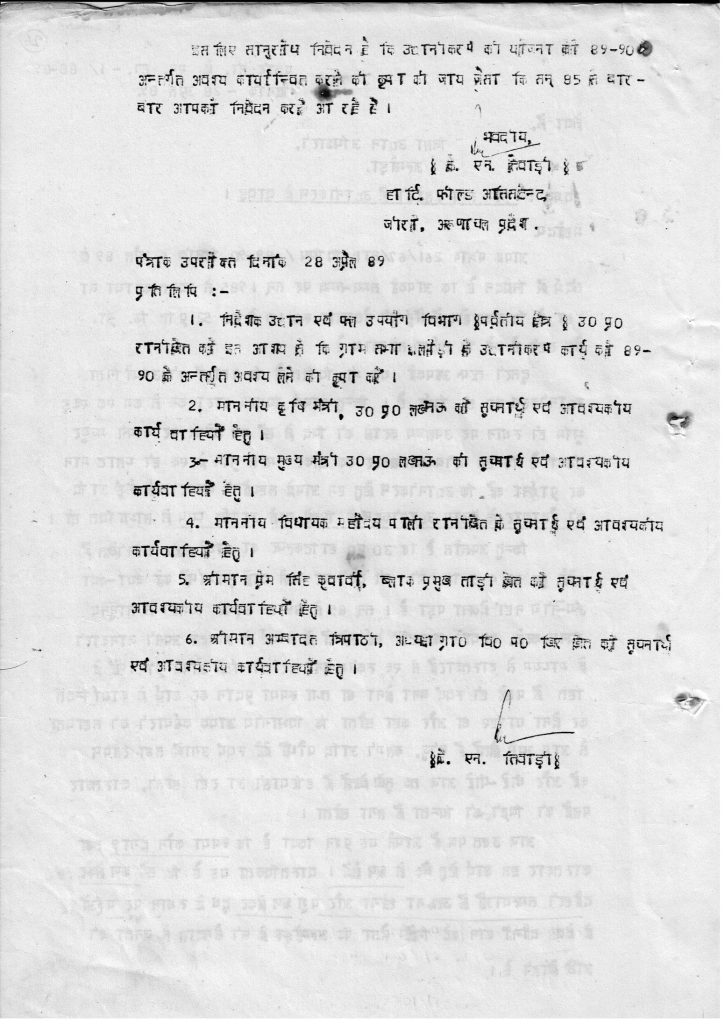 इस लिए सानुरोध निवेदन है कि उद्यानीकरण की योजना को 89-90
अन्तर्गत अवश्य कार्यान्वित करने की कृपा की जाय जैसा कि सन् 85 से बार-
बार आपको निवेदन करते आ रहे हैं ।
भवदीय,
§ के. एन. तेवाड़ी §
हार्टि. फील्ड असिसटेन्ट,
जीरो, अरूणाचल प्रदेश.
पत्रांक उपरोक्त दिनांक 28 अप्रैल 89
प्रतिलिपि :-
1. निदेशक उद्यान एवं फल उपयोग विभाग §पर्वतीय क्षेत्र § उ0 प्र0
रानीखेत को इस आशय से कि ग्राम सभा के उद्यानीकरण कार्य को 89-
90 के अन्तर्गत अवश्य लेने की कृपा करें ।
2. माननीय कृषि मंत्री, उ0 प्र0 लखनऊ को सूचनार्थ एवं आवश्यकीय
कार्य वाहियों हेतु ।
3- माननीय मुख्य मंत्री उ0 प्र0 लखनऊ को सूचनार्थ एवं आवश्यकीय
कार्यवाहियों हेतु ।
4. माननीय विधायक महोदय पाली रानीखेत को सूचनार्थ एवं आवश्यकीय
कार्यवाहियों हेतु ।
5. श्रीमान प्रेम सिंह ब्लाक प्रमुख ताड़ी खेत को सूचनार्थ एवं
आवश्यकीय कार्यवाहियों हेतु ।
6. श्रीमान अम्बादत त्रिपाठी, अध्यक्ष ग्रा0 वि0 प0 खेत को सूचनार्थ
एवं आवश्यकीय कार्यवाहियों हेतु ।
§के. एन. तिवाड़ी§